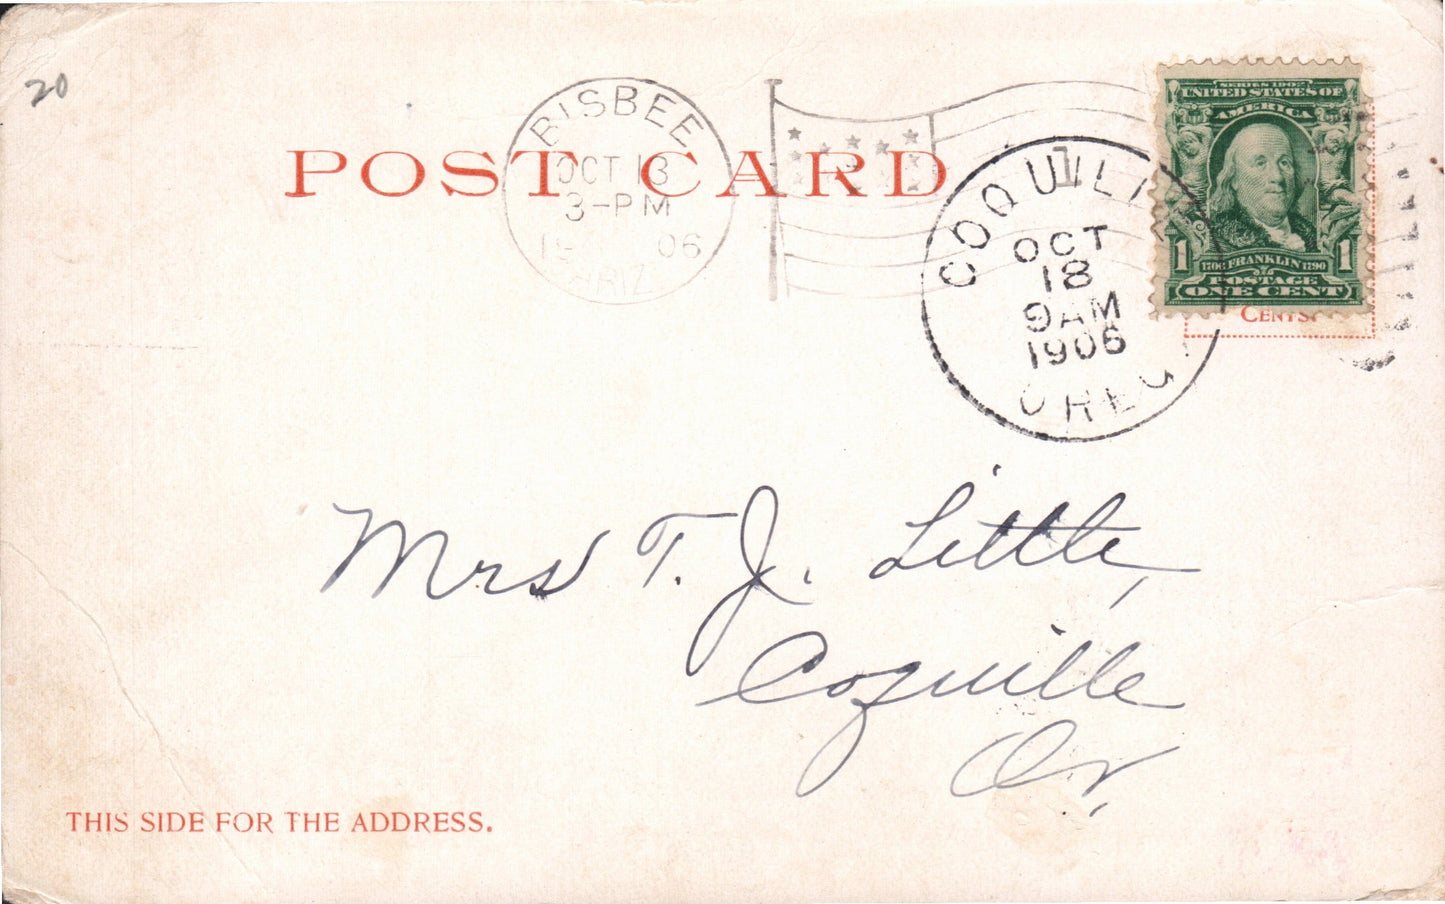 20
POST CARD
BISBEE
OCT 13
3-PM
1906
ARIZ
COQUILLE
1
OCT
18
9 AM
1906
OREG.
SERIES 1902
UNITED STATES OF
AMERICA
1 1706 FRANKLIN 1790 1
POSTAGE
ONE CENT
CENTS.
Mrs T. J. Little,
Coquille
Or.
THIS SIDE FOR THE ADDRESS.